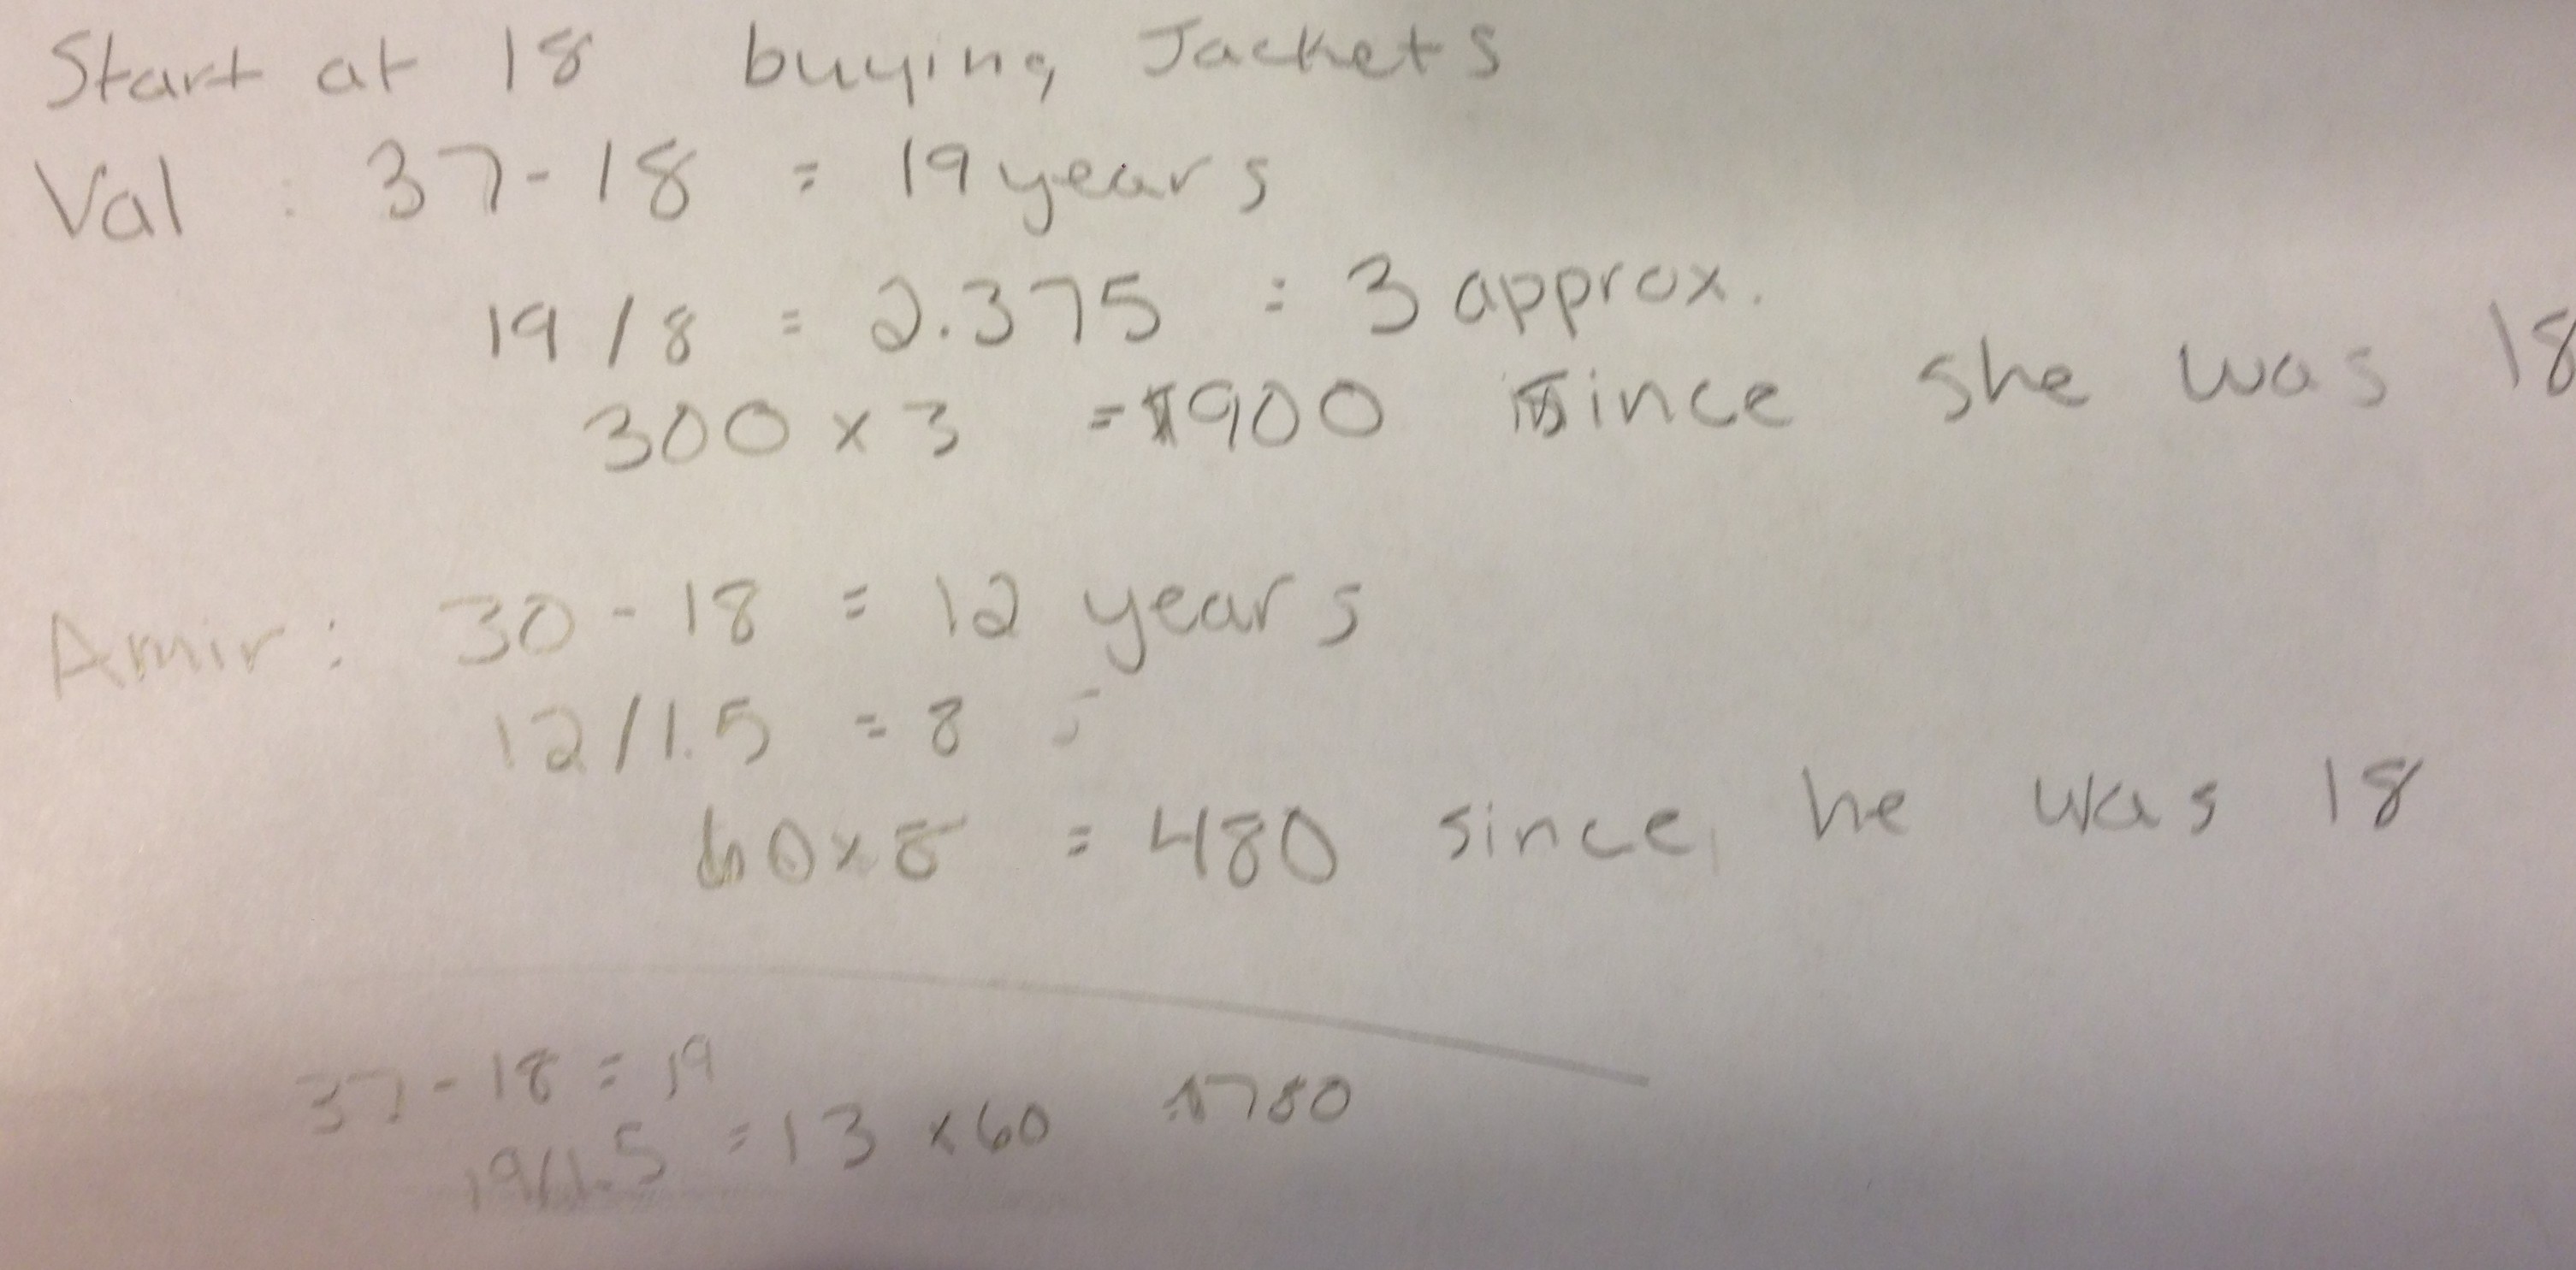 Start at 18 buying Jackets
Val : 37 - 18 = 19 years
19 / 8 = 2.375 = 3 approx.
300 x 3 = $900 since she was 18
Amir : 30 - 18 = 12 years
12 / 1.5 = 8
60 x 8 = 480 since he was 18
37 - 18 = 19
19/1.5 = 13 x 60 $780